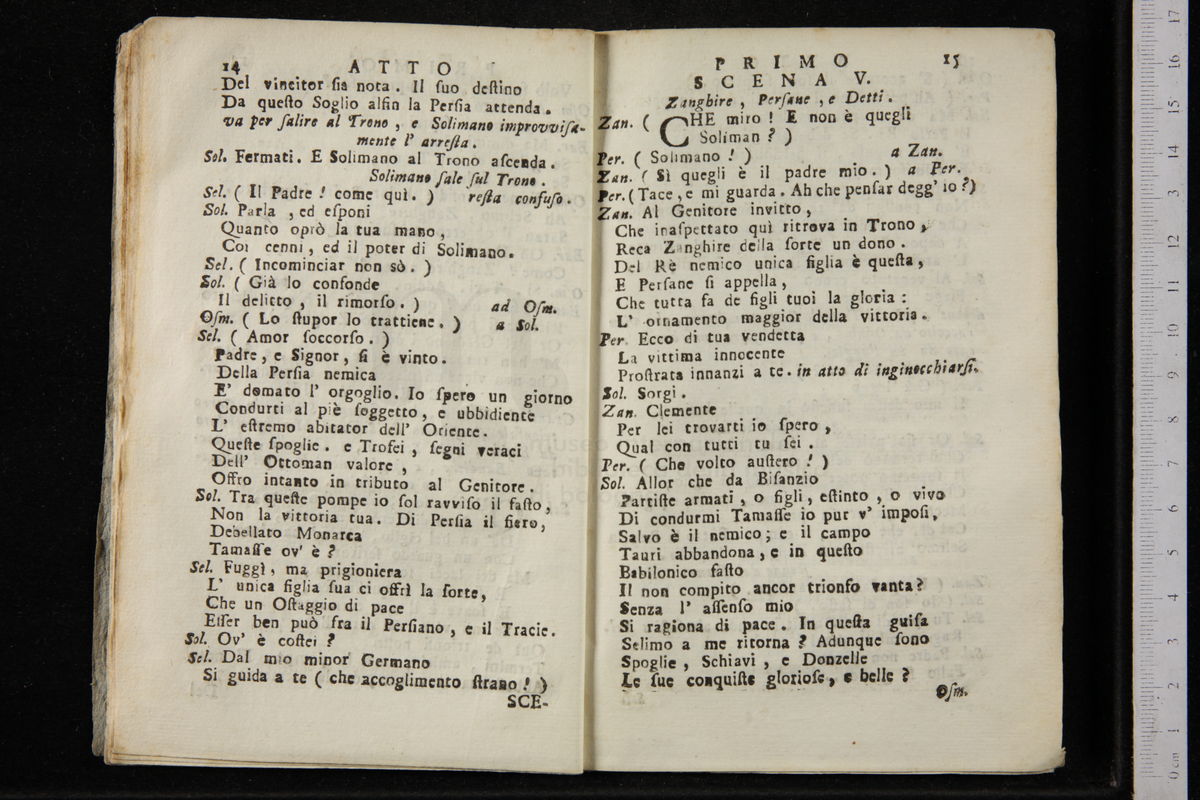 14 ATTO
Del vincitor ſia nota. Il ſuo deſtino
Da queſto Soglio alfin la Perſia attenda.
va per ſalire al Trono, e Solimano improvviſa-
mente l' arreſta.
Sol. Fermati. E Solimano al Trono aſcenda.
Solimano ſale ſul Trono.
Sel. ( Il Padre! come quì. ) reſta confuſo.
Sol. Parla, ed eſponi
Quanto oprò la tua mano,
Coi cenni, ed il poter di Solimano.
Sel. ( Incominciar non sò. )
Sol. ( Già lo confonde
Il delitto, il rimorſo. ) ad Oſm.
Oſm. ( Lo ſtupor lo trattiene. ) a Sol.
Sel. ( Amor ſoccorſo. )
Padre, e Signor, ſi è vinto.
Della Perſia nemica
E' domato l' orgoglio. Io ſpero un giorno
Condurti al piè ſoggetto, e ubbidiente
L' eſtremo abitator dell' Oriente.
Queſte ſpoglie. e Trofei, ſegni veraci
Dell' Ottoman valore,
Offro intanto in tributo al Genitore.
Sol. Tra queſte pompe io ſol ravviſo il faſto,
Non la vittoria tua. Di Perſia il fiero,
Debellato Monarca
Tamaſſe ov' è?
Sel. Fuggì, ma prigioniera
L' unica figlia ſua ci offrì la ſorte,
Che un Oſtaggio di pace
Eſſer ben può fra il Perſiano, e il Tracie.
Sol. Ov' è coſtei?
Sel. Dal mio minor Germano
Si guida a te ( che accoglimento ſtrano! )
SCE-
PRIMO 15
SCENA V.
Zanghire, Perſane, e Detti.
Zan. ( CHE miro! E non è quegli
Soliman? )
Per. ( Solimano! ) a Zan.
Zan. ( Sì quegli è il padre mio. ) a Per.
Per. ( Tace, e mi guarda. Ah che penſar degg' io?)
Zan. Al Genitore invitto,
Che inaſpettato quì ritrova in Trono,
Reca Zanghire della ſorte un dono.
Del Rè nemico unica figlia è queſta,
E Perſane ſi appella,
Che tutta fa de figli tuoi la gloria:
L' ornamento maggior della vittoria.
Per. Ecco di tua vendetta
La vittima innocente
Proſtrata innanzi a te. in atto di inginocchiarſi.
Sol. Sorgi.
Zan. Clemente
Per lei trovarti io ſpero,
Qual con tutti tu ſei.
Per. ( Che volto auſtero! )
Sol. Allor che da Biſanzio
Partiſte armati, o figli, eſtinto, o vivo
Di condurmi Tamaſſe io pur v' impoſi,
Salvo è il nemico; e il campo
Tauri abbandona, e in queſto
Babilonico faſto
Il non compito ancor trionfo vanta?
Senza l' aſſenſo mio
Si ragiona di pace. In queſta guiſa
Selimo a me ritorna? Adunque ſono
Spoglie, Schiavi, e Donzelle
Le ſue conquiſte glorioſe, e belle?
Oſm.